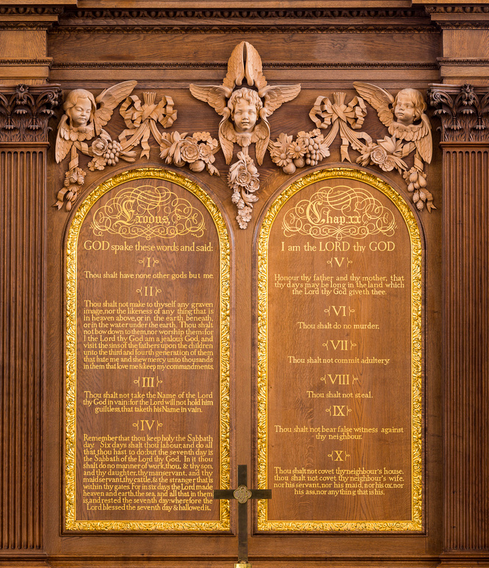 Exodus.
GOD spake these words and said:
I
Thou shalt have none other gods but me.
II
Thou shalt not make to thyself any graven
image, nor the likeness of any thing that is
in heaven above, or in the earth beneath,
or in the water under the earth. Thou shalt
not bow down to them, nor worship them: for
I the Lord thy God am a jealous God, and
visit the sins of the fathers upon the children
unto the third and fourth generation of them
that hate me and shew mercy unto thousands
in them that love me & keep my commandments.
III
Thou shalt not take the Name of the Lord
thy God in vain: for the Lord will not hold him
guiltless, that taketh his Name in vain.
IV
Remember that thou keep holy the Sabbath
day. Six days shalt thou labour, and do all
that thou hast to do: but the seventh day is
the Sabbath of the Lord thy God. In it thou
shalt do no manner of work, thou, & thy son,
and thy daughter, thy manservant, and thy
maidservant, thy cattle, & the stranger that is
within thy gates. For in six days the Lord made
heaven and earth, the sea, and all that in them
is, and rested the seventh day: wherefore the
Lord blessed the seventh day & hallowed it.
Chap. xx
I am the LORD thy GOD
V
Honour thy father and thy mother, that
thy days may be long in the land which
the Lord thy God giveth thee.
VI
Thou shalt do no murder.
VII
Thou shalt not commit adultery.
VIII
Thou shalt not steal.
IX
Thou shalt not bear false witness against
thy neighbour.
X
Thou shalt not covet thy neighbour's house,
thou shalt not covet thy neighbour's wife,
nor his servant, nor his maid, nor his ox, nor
his ass, nor any thing that is his.